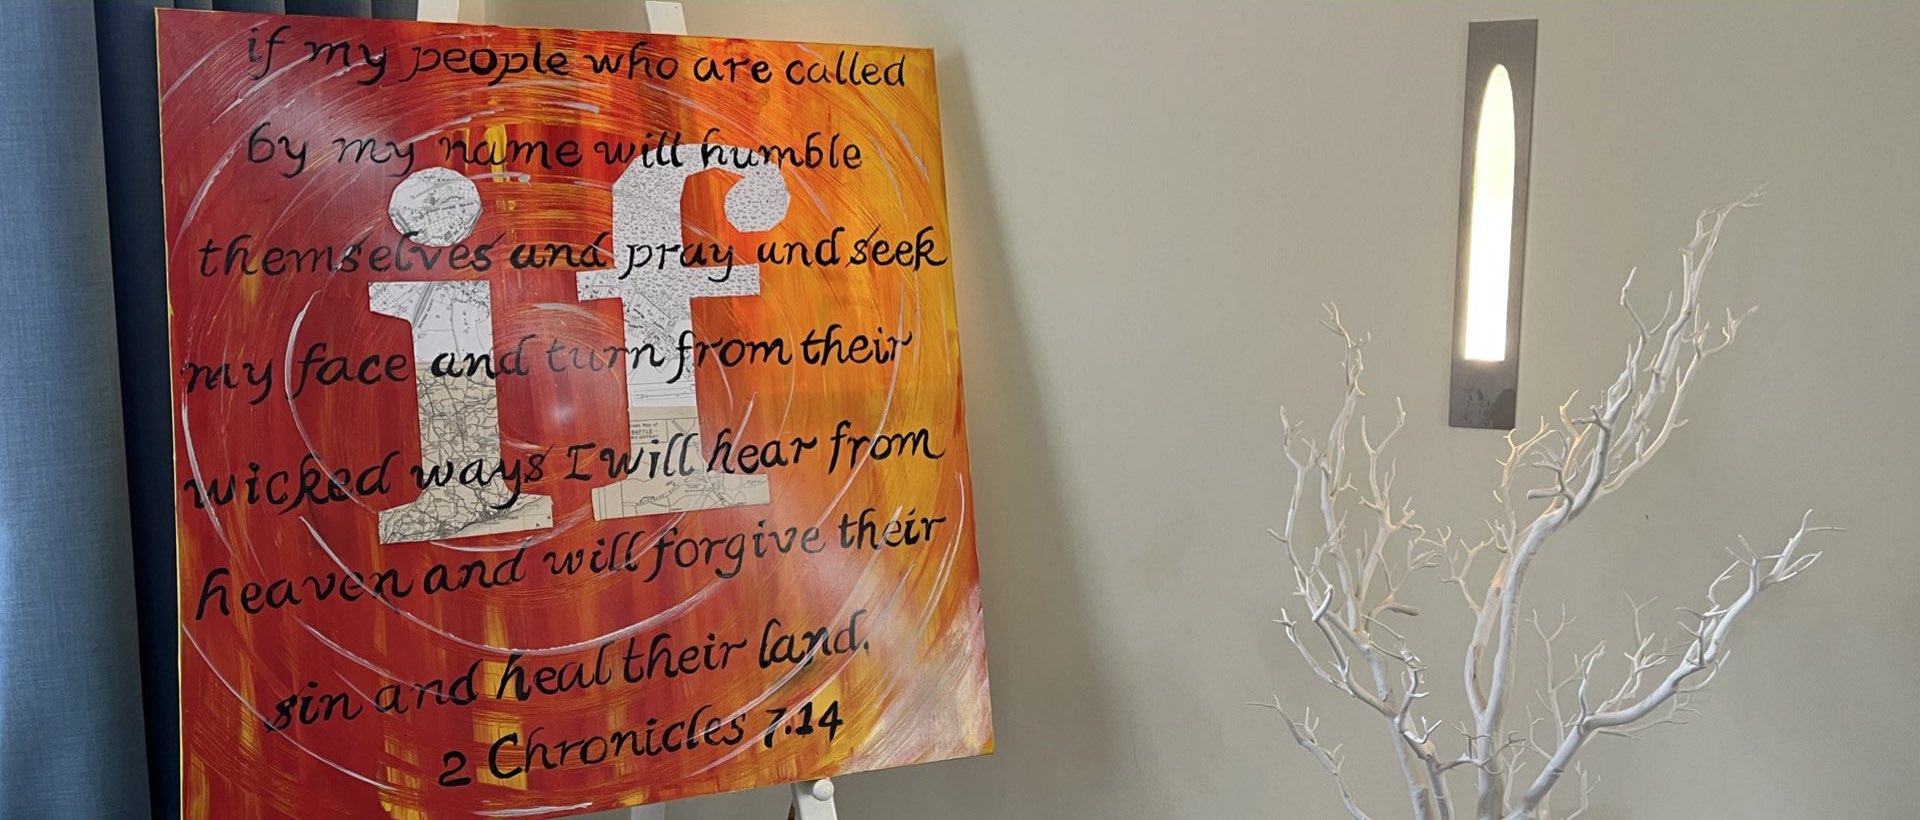 if my people who are called
by my name will humble
themselves and pray and seek
my face and turn from their
wicked ways I will hear from
heaven and will forgive their
sin and heal their land.
2 Chronicles 7.14
if
BATTLE